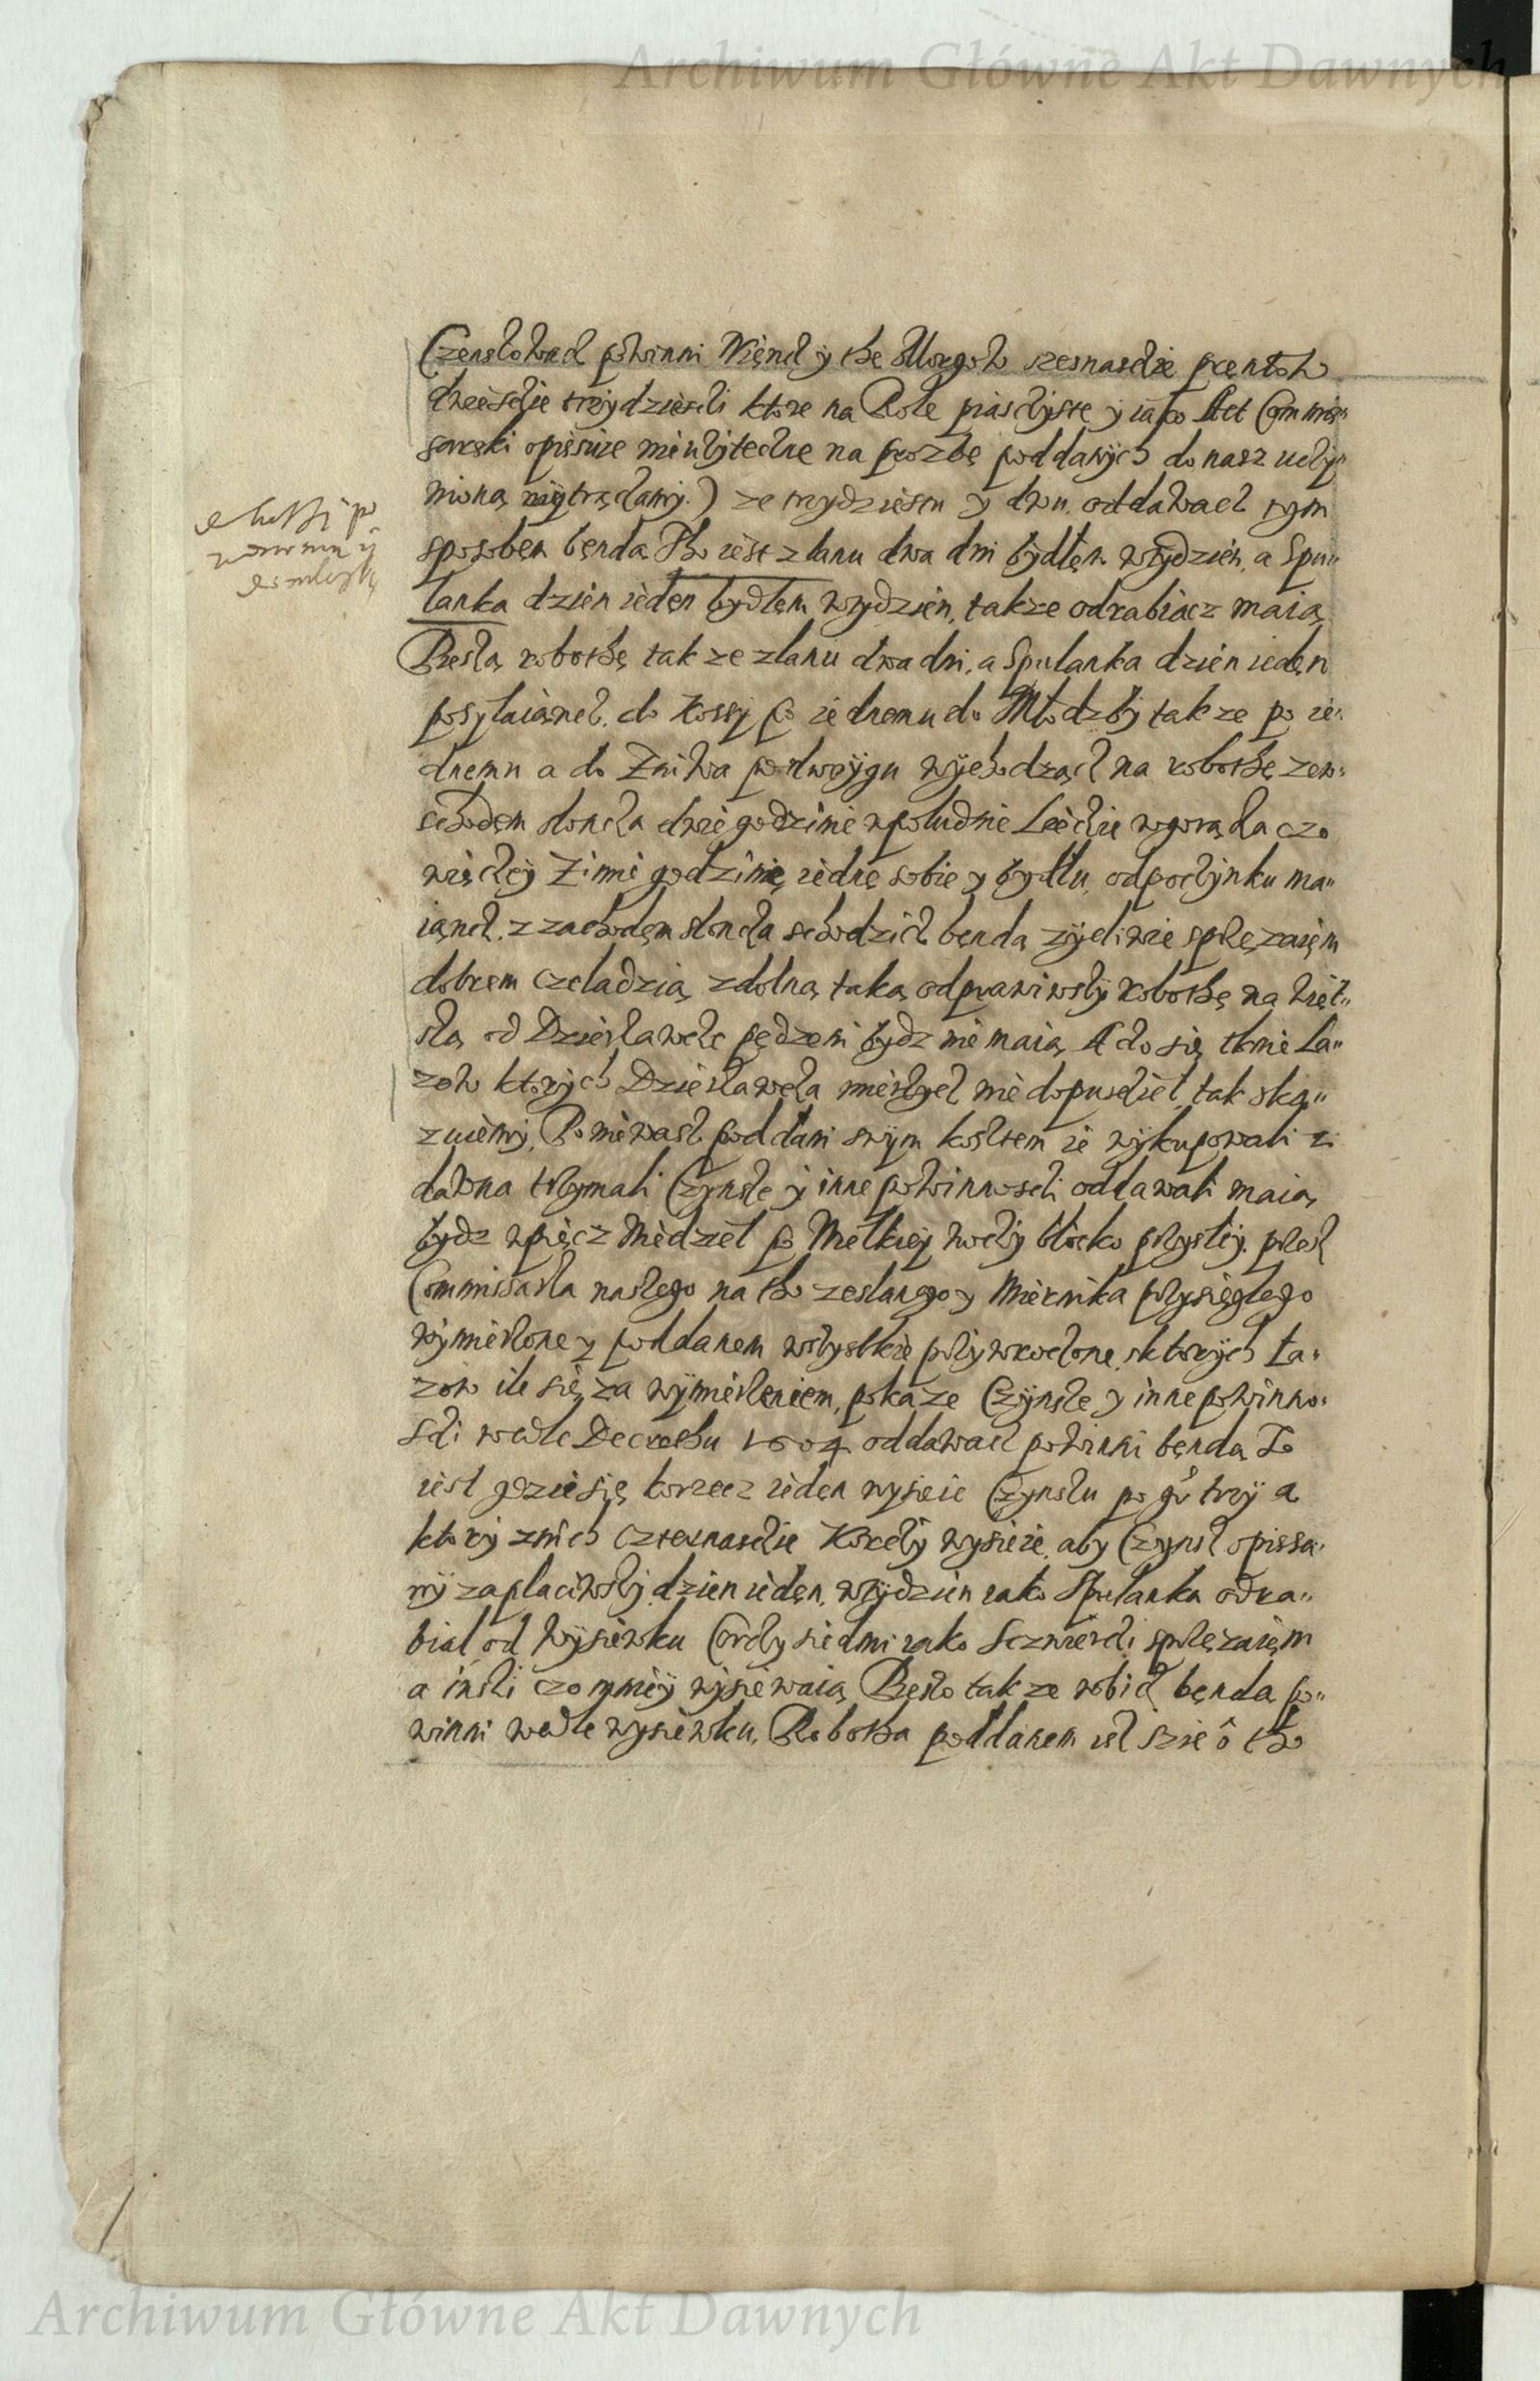 Archiwum Główne Akt Dawnych
powinni Więncz y the Morgow szesnascie prentow
dwiescie trzydziesci ktore na Role piasczyste y iako Act Commis„
sarski opisuie nieuzyteczne na prozbę poddanych do nasz uczy„
nioną wytrączamy.) ze trzydziesu y dwu. oddawacz tym
sposobem będą Tho iest z lanu dwa dni bydłem wtydzien, a Spu„
lanka dzien ieden bydłem wtydzien, takze odrabiacz maią
Pieszą robothę takze zlanu dwa dni, a Spulanka dzien ieden
posylaiancz. do Kossy po iednemu do Młodzby takze po ie„
dnemu a do Zniwa podwoygu wychodzącz na robothę zew„
schodem sloncza dwie godzinie wpoludnie Leczie wgorącza czo
więczey Zimie godzinię iednę sobie y bydłu odpoczynku ma„
iąncz. z zachodem sloncza schodzicz będą zyczliwie sprzęzaięm
dobrem czeladzią zdolną taką odprawiwszy robothę na więt„
szą od Dzierzawcze pędzeni bydz nie maią A czo się tknie Ła„
zow ktorych Dzierzawcza mierzycz nie dopusciel tak ska„
zuiemy, Poniewasz poddani swym kosztem ie wykupowali z
dawna trzymali Czynsze y inne powinnosci oddawali maią
bydz wpięcz Niedziel po Wielkiey noczy blisko przyszley. przez
Commissarza naszego na tho zeslanego y Miernika przysięglego
wymierzone y poddanem wszystkie przywroczone, sktorych Ła„
zow ile się za wymierzeniem, pokaze Czynsze y inne powinno„
sci wedle Decrethu 1604 oddawacz powinni będą To
iest gdzie się korzecz ieden wysieie Czynszu po gr trzy a
ktory znich czternascie Korczy wysieie, aby Czynsz opissa„
ny zaplaciwszy dzien ieden, wtydzien iako Spulanka odra„
bial od wysiewku Corczy siedmi iako sczwierci sprzęzaięm
a inszi czo mniey wysiewaią Pieszo takze robicz będą po„
winni wedle wysiewku, Robotha poddanem isz szie o tho
Archiwum Główne Akt Dawnych